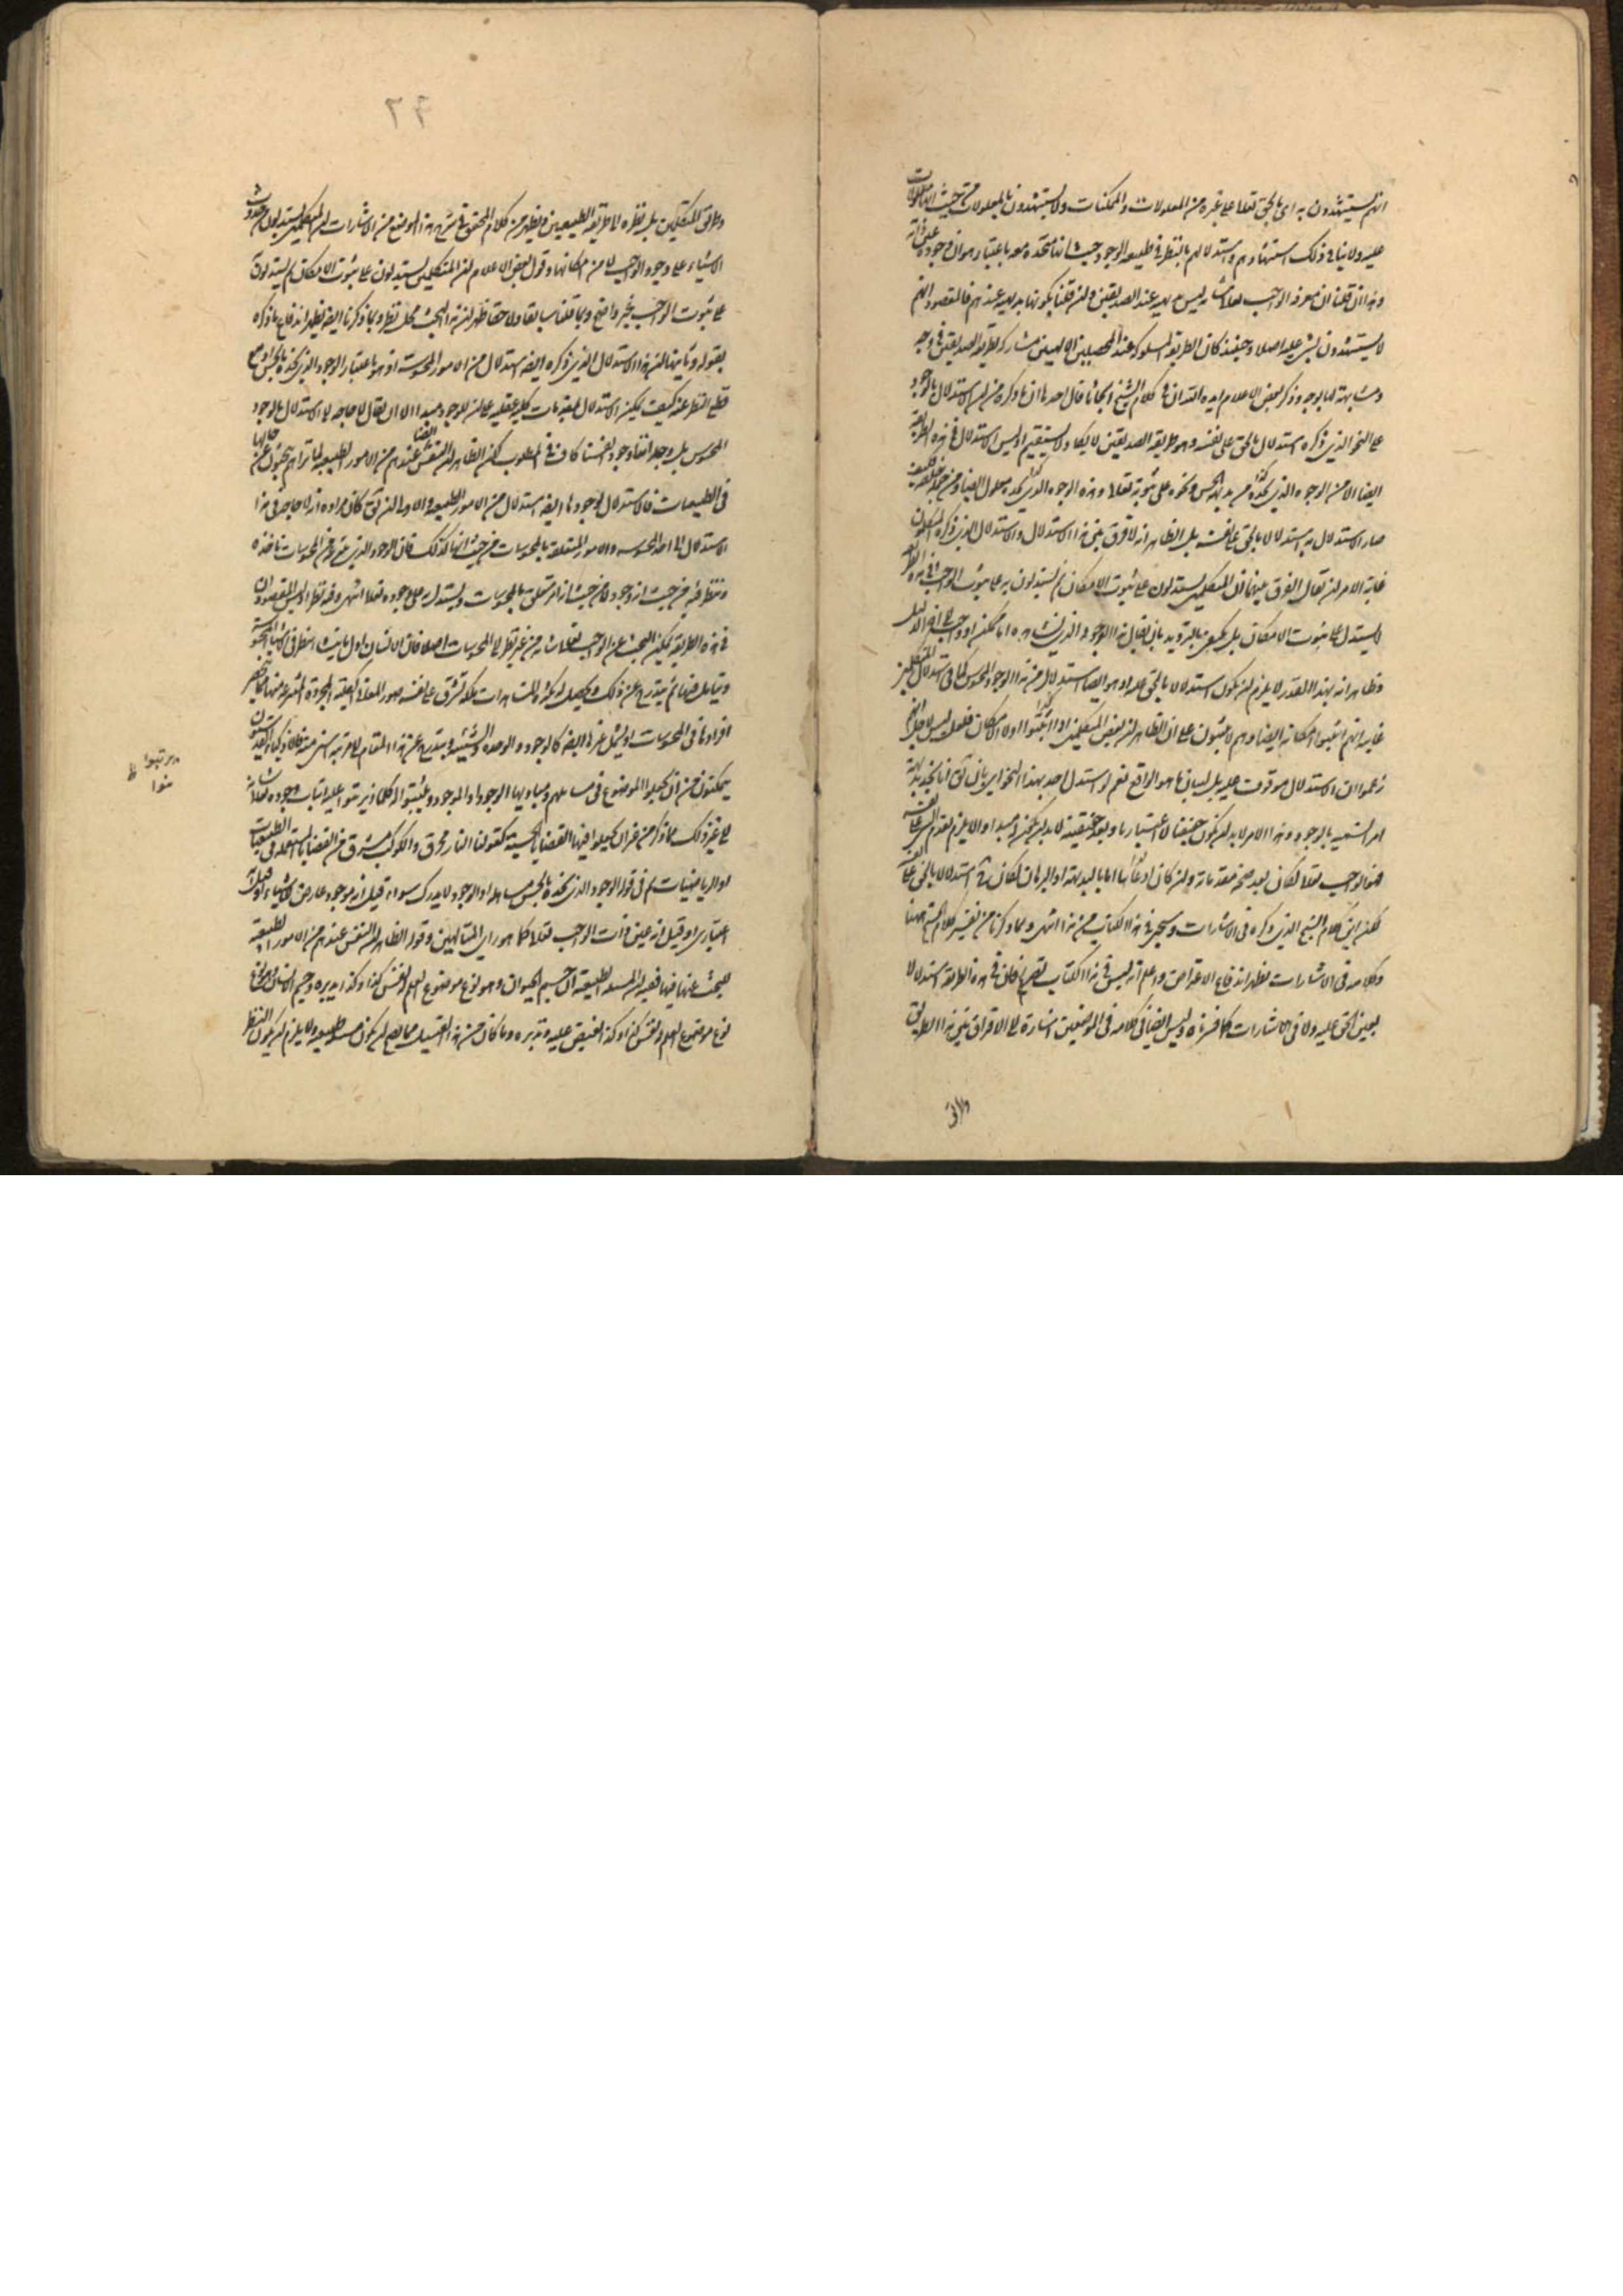 انهم يستشهدون به اى بالحق تعالى على غيره من المعلولات والممكنات ولا يستشهدون بالمعلولات من حيث انها معلولات
عليه ولا ينافى ذلك استشهادهم واستدلالهم بالنظر فى طبيعة الوجود حيث انها متحدة معه باعتبار هو ان وجوده عين ذاته
وهذا ان قلنا ان معرفة الواجب تعالى شانه ليس بديهية عند الصديقين ولئن قلنا بكونها بديهية عندهم فالمقصود انهم
لا يستشهدون بشىء عليه اصلا وحينئذ كان الطريقة المسلوكة عند المحصلين الالهيين مشاركة لطريقة الصديقين فى وجه
ومشابهة لها بوجه وذكر بعض الاعلام ايده الله ان فى كلام الشيخ ابحاثا قال احدها ان ما ذكره من ان الاستدلال بالوجود
على النحو الذى ذكره استدلال بالحق على نفسه وهو طريقة الصديقين لا يكاد يستقيم اذ ليس الاستدلال فى هذه الطريقة
ايضا الا من الوجود الذى نجده من بديهة الحس ونحوه على ثبوته تعالى وهذه الوجود الذى نجده معلول ايضا
صار الاستدلال به استدلالا بالحق على نفسه بل الظاهر انه لا فرق بين هذا الاستدلال والاستدلال الذى ذكره المتكلمون
غاية الامر ان يقال الفرق بينهما ان المتكلمين يستدلون على ثبوت الامكان ثم يستدلون به على ثبوت الواجب
لا يستدل على ثبوت الامكان بل يكتفى بالترديد بان يقال هذا الوجود الذى نشاهده اما ممكن او واجب الى اخر الدليل
وظاهر انه بهذا القدر لا يلزم ان يكون استدلالا بالحق عليه اذ هو ايضا استدلال من هذا الوجود المحسوس كما فى استدلال المتكلمين
غايته انهم اثبتوا امكانه ايضا وهم لا يثبتون على ان الظاهر ان بعض المتكلمين اذا اثبتوا اولا الامكان فلعله ليس لاجل انهم
زعموا ان الاستدلال موقوف عليه بل لبيان ما هو الواقع نعم لو استدل احد بهذا النحو اى بان انا نجد بديهة
امرا نسميه بالوجود وهذا الامر لا بد ان يكون حقيقيا لا اعتباريا وبعد حقيقته لا بد ان يكون له مبدا والا يلزم تقدم الشىء على نفسه
فهو الواجب تعالى لكان بعد صحة مقدماته ولئن كان ادعائها اما بالبديهة او البرهان لكان استدلالا بالحق على نفسه
لكنه اين كلام الشيخ الذى ذكره فى الاشارات وسيجىء فى هذا الكتاب من هذا انتهى وبما ذكرنا من تفسير كلام الشيخ ههنا
وكلامه فى الاشارات يظهر اندفاع الاعتراض واعلم انه ليس فى هذا الكتاب تصريح فان فى هذه الطريقة استدلالا
بعين الحق عليه ولا فى الاشارات كما فسرناه وليس ايضا فى كلامه فى الموضعين اشارة الى الافتراق بين هذا الطريق
٦٢
وطريق المتكلمين بل نظره الى طريقة الطبيعيين ويظهر من كلام المحقق فى شرح هذا الموضع من الاشارات ان المتكلمين يستدلون بحدوث
الاشياء على وجود الواجب لا من امكانها وقول بعض الاعلام ان المتكلمين يستدلون على ثبوت الامكان ثم يستدلون
على ثبوت الواجب غير واضح وبما تلقيناه سابقا ولاحقا ظهر ان هذا البحث محل نظر وبما ذكرنا ايضا يظهر اندفاع ما ذكره
بقوله وثانيها ان هذا الاستدلال الذى ذكره ايضا استدلال من الامور المحسوسة اذ هو باعتبار الوجود الذى نجده بالحس ومع
قطع النظر عنه كيف يمكن الاستدلال بمقدمات كلية عقلية على ان للوجود مبدا الا ان يقال لا حاجة الى الاستدلال بالوجود
المحسوس بل وجدانفا وجود انفسنا كاف فى المطلوب لكن الظاهر ان النفس ايضا عندهم من الامور الطبيعية لما تراهم يبحثون عن حالها
فى الطبيعيات فالاستدلال بوجودها ايضا استدلال من الامور الطبيعية والاولى ان كان مراده انه لا حاجة فى هذا
الاستدلال الى اخذ المحسوسة والامور المتعلقة بالمحسوسات من حيث انها كذلك فان الوجود الذى هو من المحسوسات ناخذه
وننظر فيه من حيث انه وجود لا من حيث انه امر متعلق بالمحسوسات ويستدل به على وجوده تعالى انتهى وفيه نظر اذ ليس المقصود ان
فى هذه الطريقة يمكن البحث عن الواجب تعالى شانه من غير نظر الى المحسوسات اصلا فان الانسان اول ما ينشا ينظر فى الاشياء المحسوسة
ويتامل فيها ثم يتدرج عن ذلك ويحصل له بكثرة المشاهدات ملكة تشرق على نفسه صور المعانى العقلية المجردة المنتزعة منها لا ينحصر
افرادها فى المحسوسات او يشمل غيرها ايضا كالوجود والوحدة والشيئية ويتدرج عن هذا المقام الى مرتبة اسنى منه
يتمكنون من ان يجعلوا الموضوع فى مسائلهم ومباديها الوجود او الموجود ويثبتوا له احكاما ويرتبوا عليه اثبات وجوده تعالى شانه
الى غير ذلك مما ذكر من غير ان يجعلوا فيها القضايا الحسية كقولنا النار محرق والكوكب مشرق من القضايا المستعملة فى الطبيعيات
او الرياضيات ثم فى قوله الوجود الذى نجده بالحس مساهلة اذ الوجود لا يدرك سواء قيل انه موجود عارض للاشياء او قيل انه
اعتبارى او قيل انه عين ذات الواجب تعالى كما هو راى المتالهين وقوله الظاهر ان النفس عندهم من الامور الطبيعية
للبحث عنها فيها ففيه ان المسئلة الطبيعية ان جسم الحيوان وهو نوع موضوع العلم له نفس كذا وكذا يدبره وجسم الانسان وهو نوع
نوع موضوع العلم له نفس كذا وكذا يفيض عليه وتدبره وما كان من هذا القبيل مما يصح ان يكون مسئلة طبيعية ولا يلزم ان يكون النظر